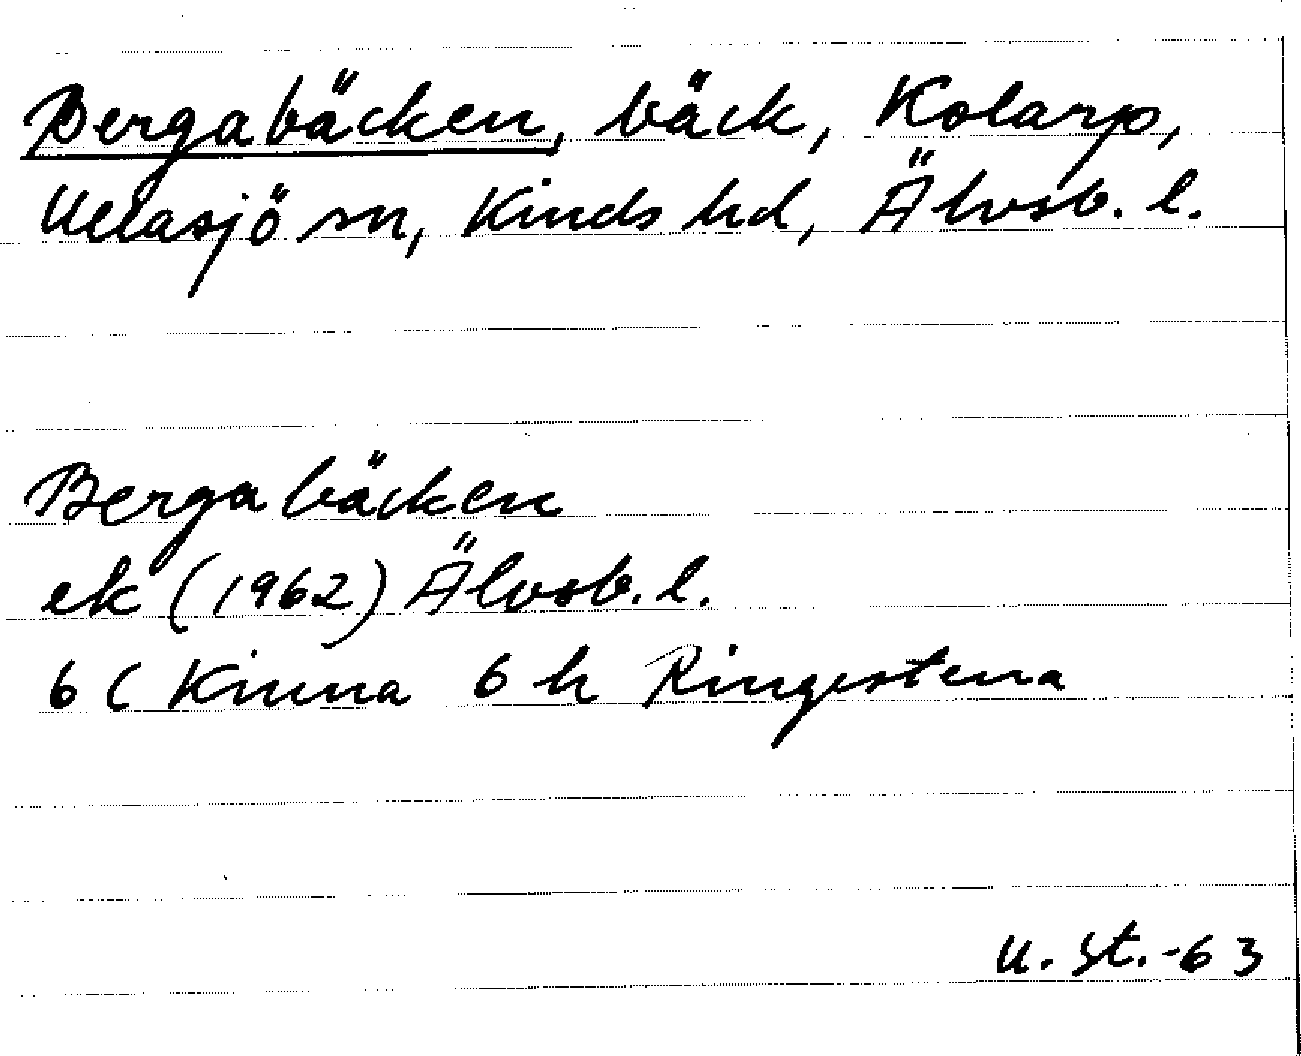 Bergabäcken, bäck, Kolarp,
Ullasjö sn, Kinds hd, Älvsb. l.
Bergabäcken
ek (1962) Älvsb. l.
6 C Kinna 6 h Ringestena
U. St. -63